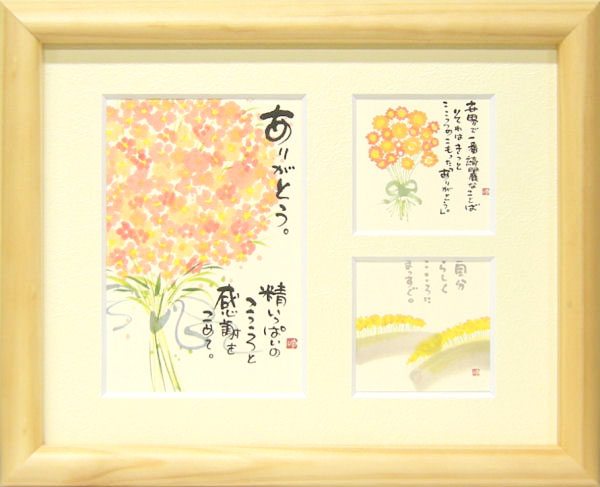 ありがとう。
精いっぱいの
こころと
感謝を
こめて。
世界で一番綺麗なことば
それはきっと
こころのこもった「ありがとう」。
自分
らしく
こころに
まっすぐ。